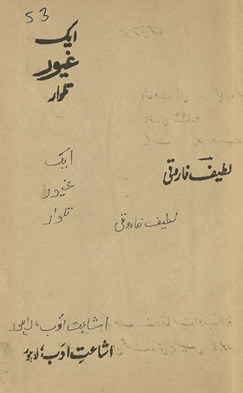 53
ایک
غیور
تلوار
لطیف فاروقی
ایک
غیور
تلوار
لطیف فاروقی
اشاعت ادب، لاہور
اشاعتِ ادب، لاہور